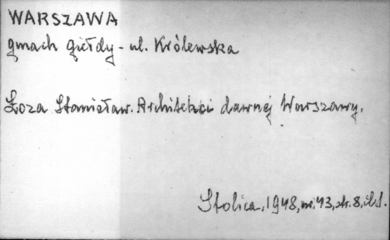 WARSZAWA
gmach giełdy - ul. Królewska
Łoza Stanisław. Architekci dawnej Warszawy.
Stolica, 1948, nr. 43, str. 8, il. 1.